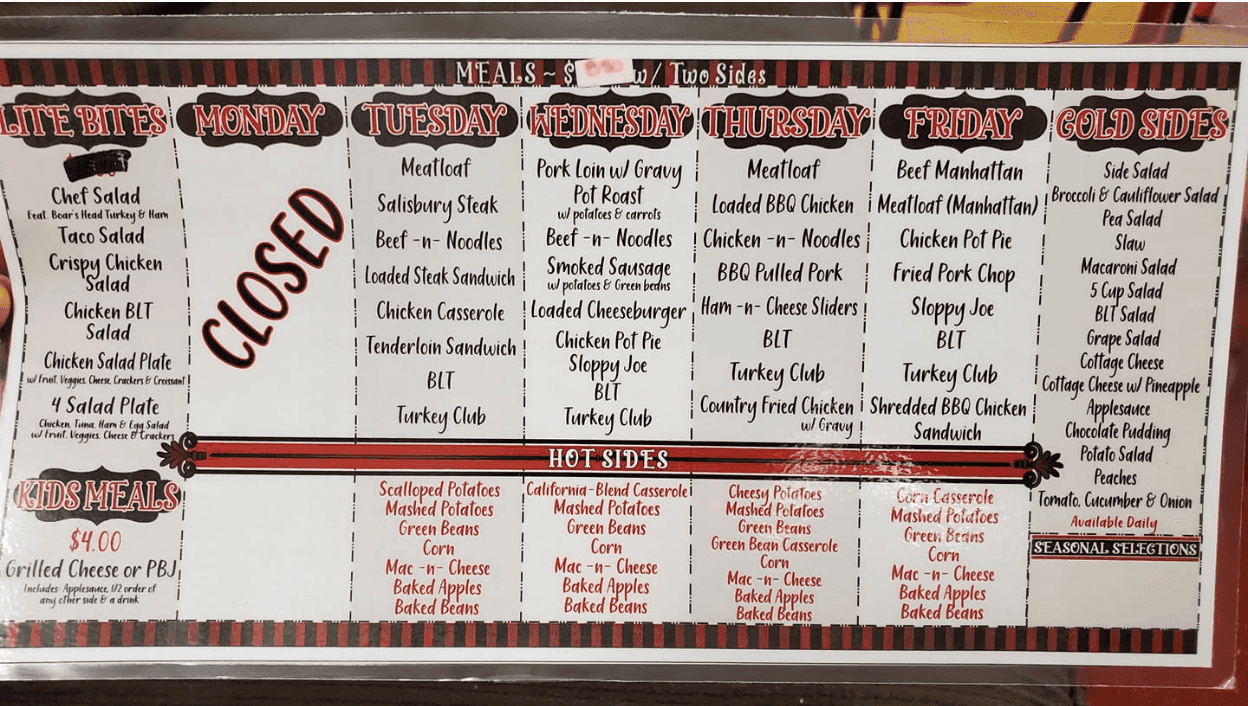 MEALS ~ $ w/ Two Sides
LITE BITES
Chef Salad
Feat. Boar's Head Turkey & Ham
Taco Salad
Crispy Chicken
Salad
Chicken BLT
Salad
Chicken Salad Plate
w/ Fruit, Veggies, Cheese, Crackers & Croissant
4 Salad Plate
Chicken, Tuna, Ham & Egg Salad
w/ Fruit, Veggies, Cheese & Crackers
KIDS MEALS
$4.00
Grilled Cheese or PBJ
Includes: Applesauce, 1/2 order of
any other side & a drink
MONDAY
CLOSED
TUESDAY
Meatloaf
Salisbury Steak
Beef -n- Noodles
Loaded Steak Sandwich
Chicken Casserole
Tenderloin Sandwich
BLT
Turkey Club
WEDNESDAY
Pork Loin w/ Gravy
Pot Roast
w/ potatoes & carrots
Beef -n- Noodles
Smoked Sausage
w/ potatoes & Green beans
Loaded Cheeseburger
Chicken Pot Pie
Sloppy Joe
BLT
Turkey Club
THURSDAY
Meatloaf
Loaded BBQ Chicken
Chicken -n- Noodles
BBQ Pulled Pork
Ham -n- Cheese Sliders
BLT
Turkey Club
Country Fried Chicken
w/ Gravy
FRIDAY
Beef Manhattan
Meatloaf (Manhattan)
Chicken Pot Pie
Fried Pork Chop
Sloppy Joe
BLT
Turkey Club
Shredded BBQ Chicken
Sandwich
HOT SIDES
Scalloped Potatoes
Mashed Potatoes
Green Beans
Corn
Mac -n- Cheese
Baked Apples
Baked Beans
California-Blend Casserole
Mashed Potatoes
Green Beans
Corn
Mac -n- Cheese
Baked Apples
Baked Beans
Cheesy Potatoes
Mashed Potatoes
Green Beans
Green Bean Casserole
Corn
Mac -n- Cheese
Baked Apples
Baked Beans
Corn Casserole
Mashed Potatoes
Green Beans
Corn
Mac -n- Cheese
Baked Apples
Baked Beans
COLD SIDES
Side Salad
Broccoli & Cauliflower Salad
Pea Salad
Slaw
Macaroni Salad
5 Cup Salad
BLT Salad
Grape Salad
Cottage Cheese
Cottage Cheese w/ Pineapple
Applesauce
Chocolate Pudding
Potato Salad
Peaches
Tomato, Cucumber & Onion
Available Daily
SEASONAL SELECTIONS